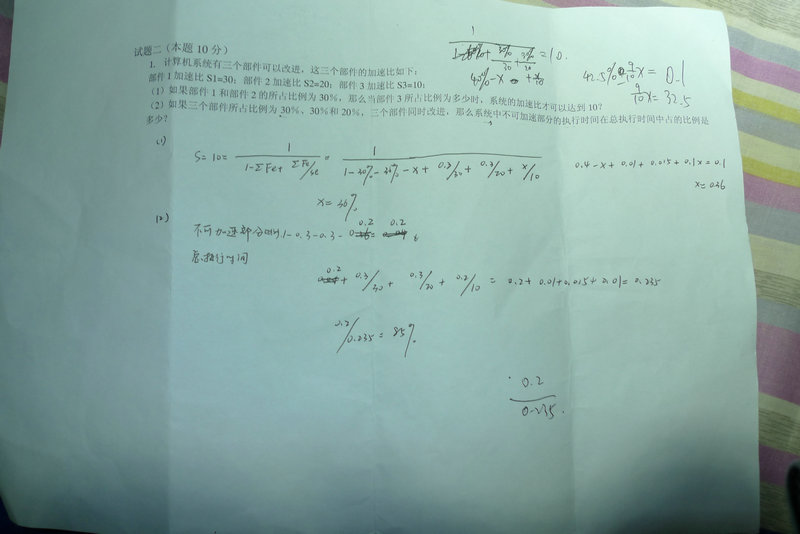 试题二（本题 10 分）
1. 计算机系统有三个部件可以改进，这三个部件的加速比如下：
部件 1 加速比 S1=30；部件 2 加速比 S2=20；部件 3 加速比 S3=10；
（1）如果部件 1 和部件 2 的所占比例为 30%，那么当部件 3 所占比例为多少时，系统的加速比才可以达到 10？
（2）如果三个部件所占比例为 30%、30%和 20%，三个部件同时改进，那么系统中不可加速部分的执行时间在总执行时间中占的比例是
多少？
42.5% - 9/10 x = 0.1
9/10 x = 32.5
(1)
S = 10 = 1/(1-ΣFe+ΣFe/Se) = 1/(1-30%-30%-x+0.3/30+0.3/20+x/10)
0.4-x+0.01+0.015+0.1x=0.1
x=0.36
x=36%
(2)
不可加速部分 1-0.3-0.3-0.2 0.2
总执行时间
0.2 + 0.3/30 + 0.3/20 + 0.2/10 = 0.2+0.01+0.015+0.01=0.235
0.2/0.235 = 85%
0.2
0.235